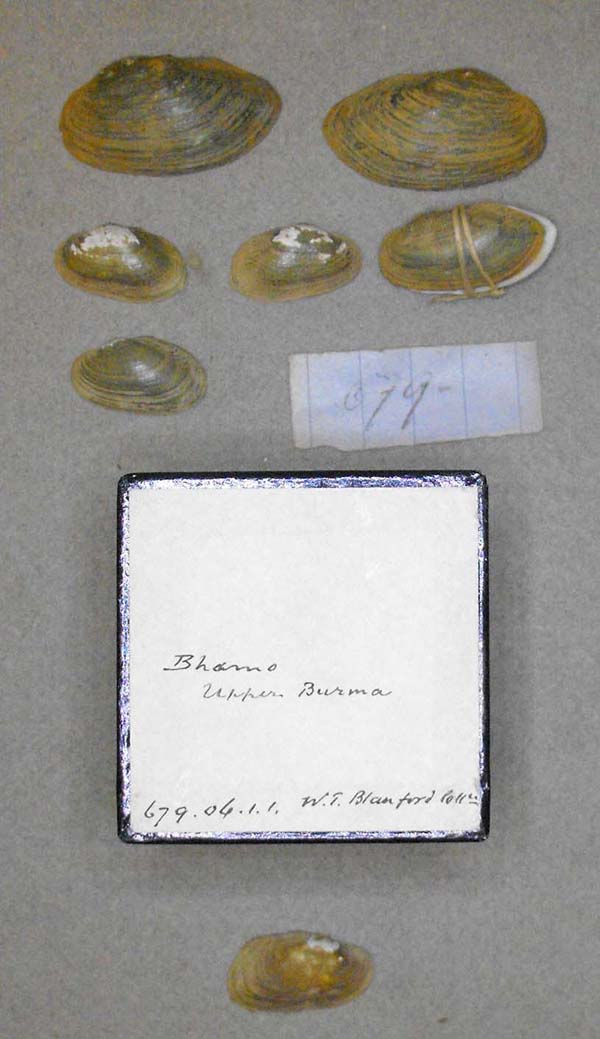 679-
Bhamo
Upper Burma
679.06.1.1. W.T. Blanford Colln